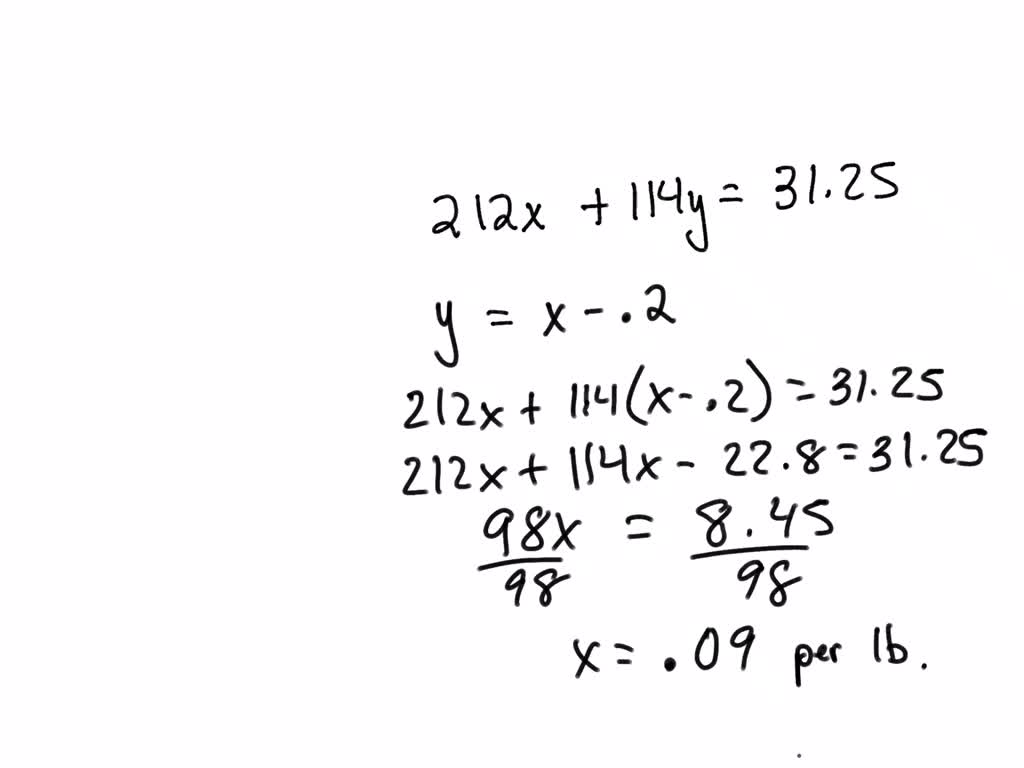 212x + 114y = 31.25
y = x - .2
212x + 114(x - .2) = 31.25
212x + 114x - 22.8 = 31.25
98x = 8.45
98 98
x = .09 per lb.